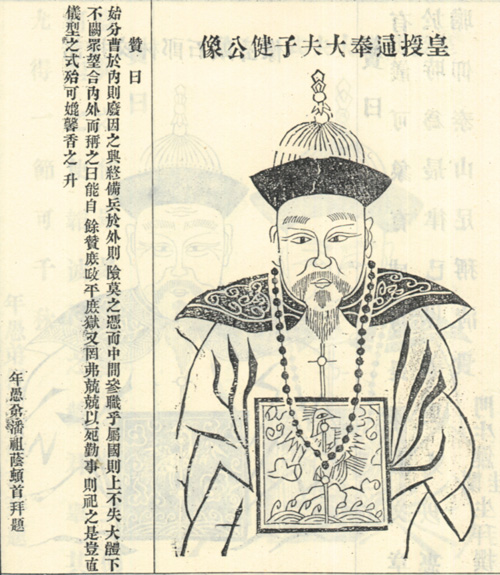 皇授通奉大夫子健公像
贊曰
始分曹於內則廢因之興終備兵於外則險莫之憑而中間叅職乎屬國則上不失大體下
不關眾望合內外而稱之曰能自餘贊庶政平庶獄又罔弗兢兢以死勤事則祀之是豈直
儀型之式殆可媲馨香之升
年愚弟潘祖蔭頓首拜題